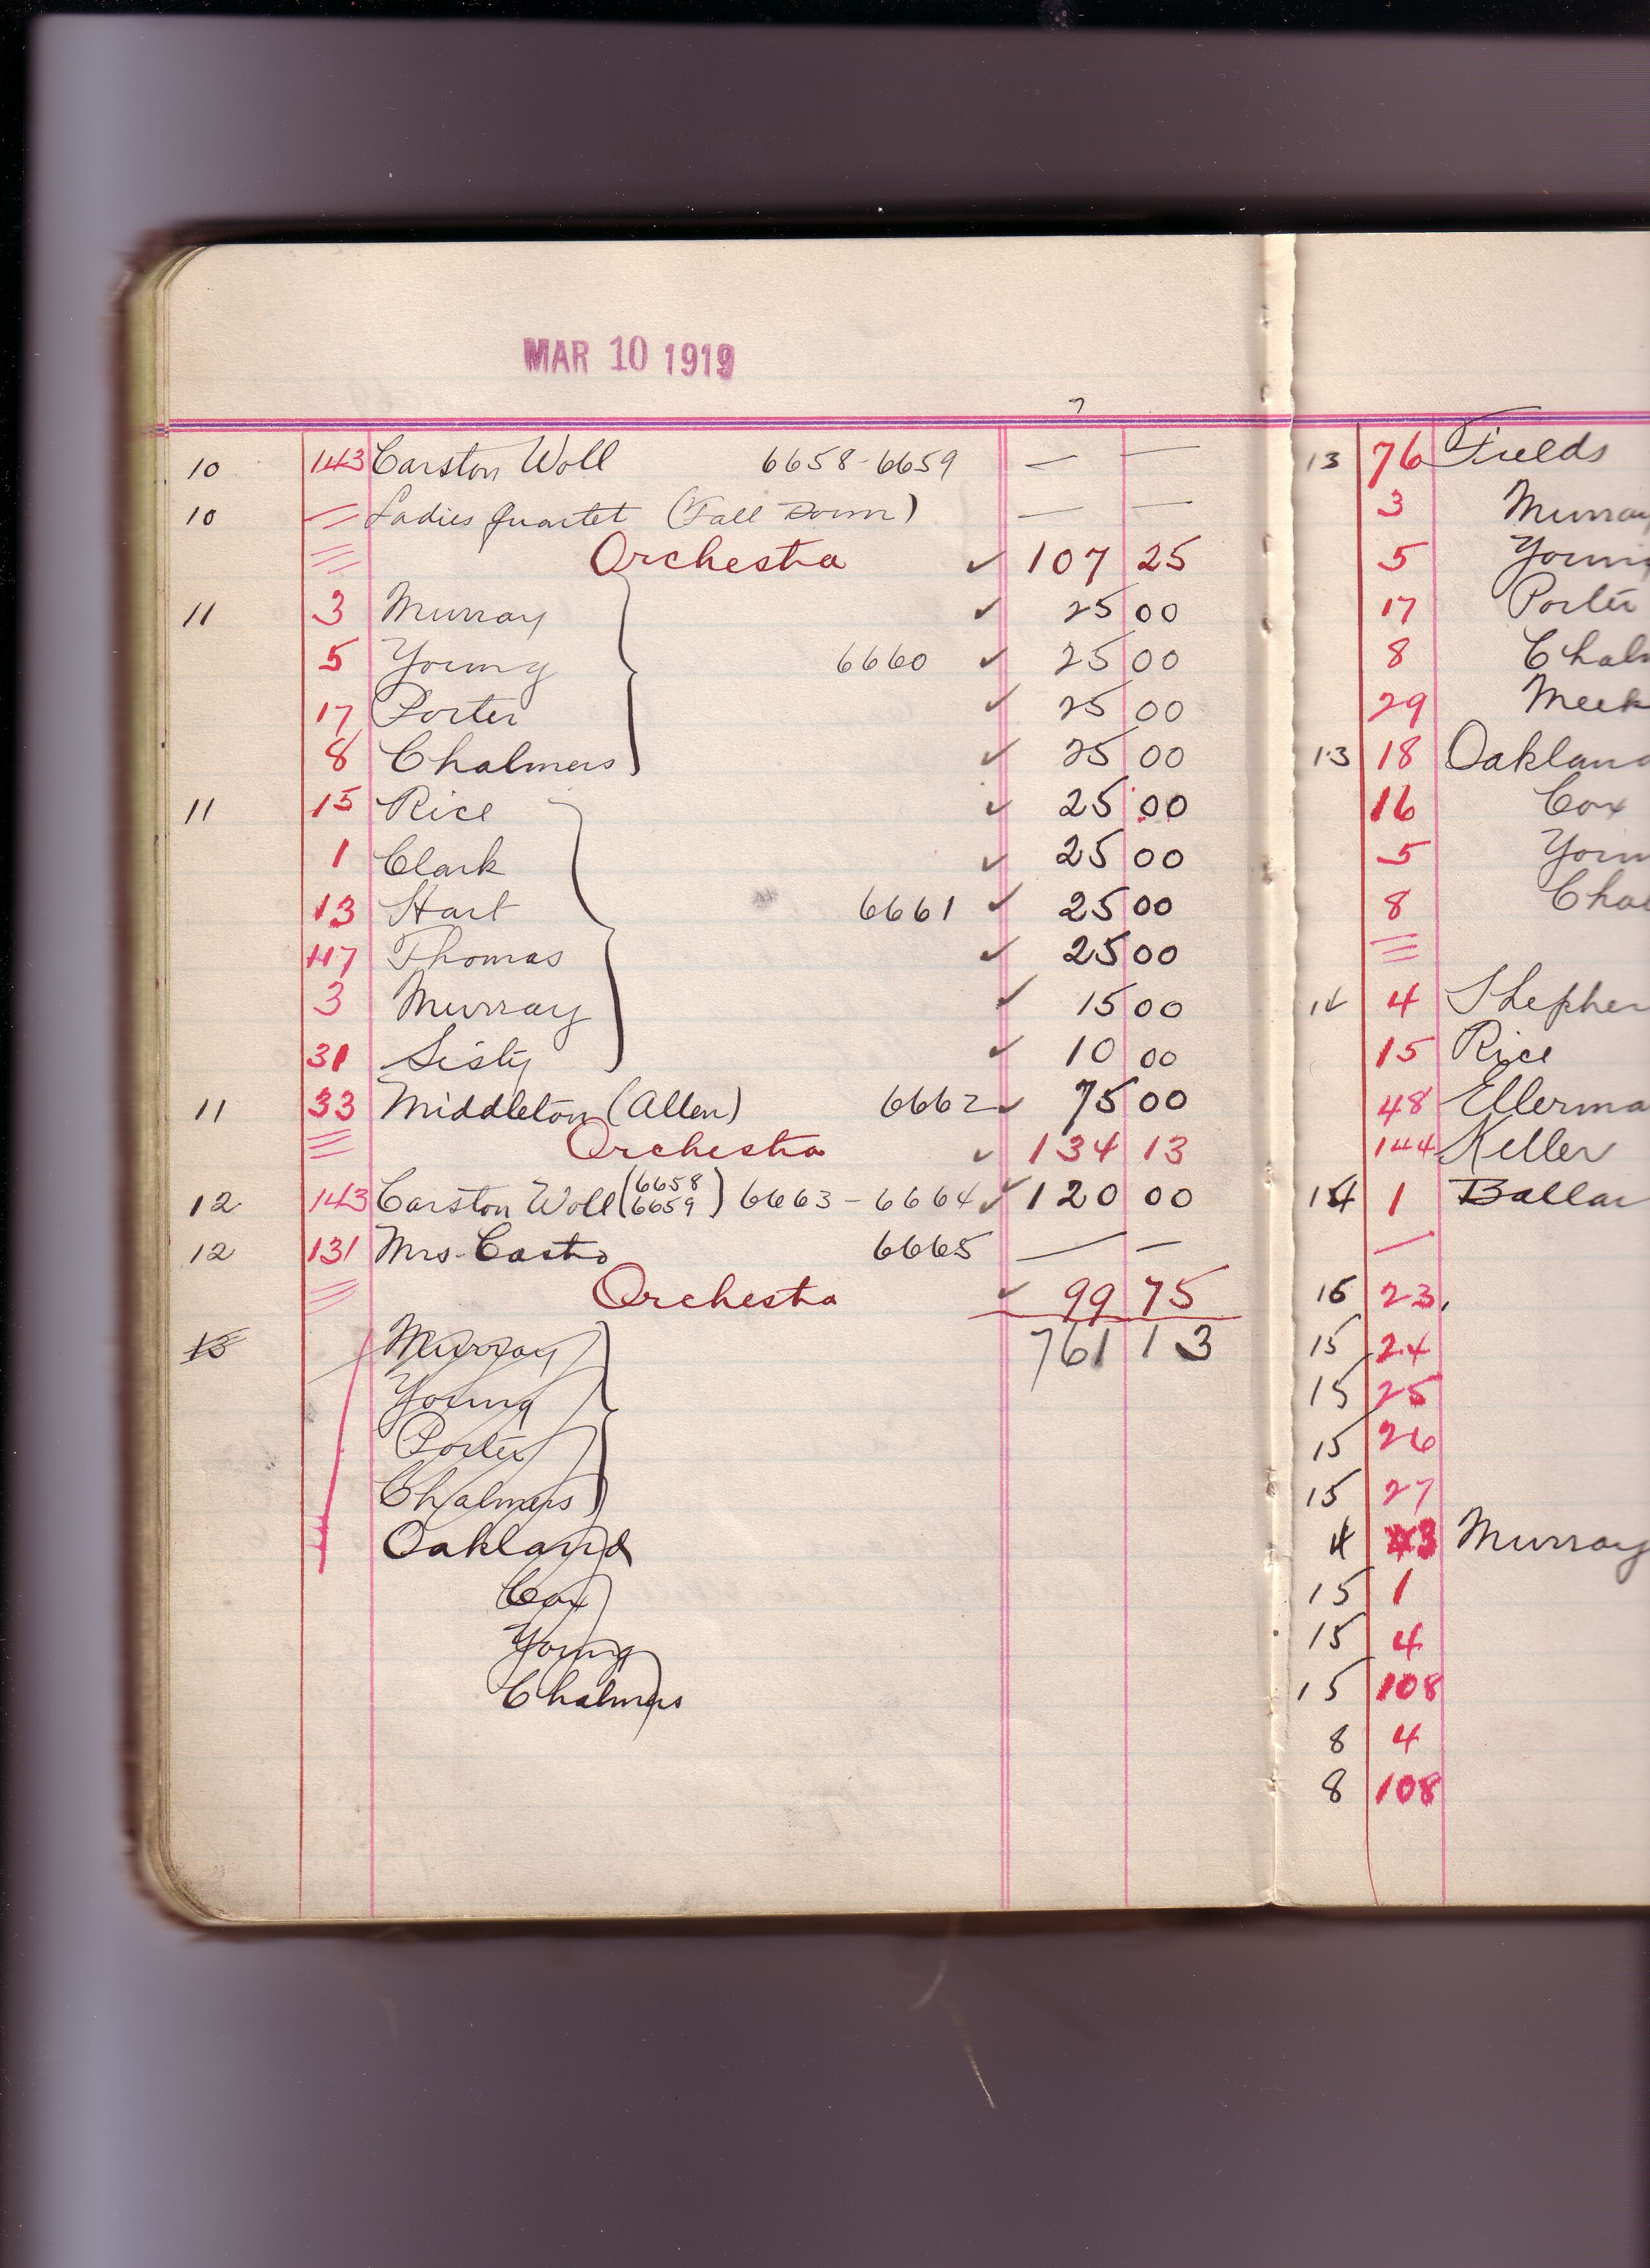 MAR 10 1919
7
10 143 Carston Woll 6658-6659 — —
10 Ladies Quartet (Fall Down) — —
Orchestra ✓ 107 25
11 3 Murray ✓ 25 00
5 Young 6660 ✓ 25 00
17 Porter ✓ 25 00
8 Chalmers ✓ 25 00
11 15 Rice ✓ 25 00
1 Clark ✓ 25 00
13 Hart 6661 ✓ 25 00
117 Thomas ✓ 25 00
3 Murray ✓ 15 00
31 Sisty ✓ 10 00
11 33 Middleton (Allen) 6662 ✓ 75 00
Orchestra ✓ 134 13
12 143 Carston Woll (6658 6659) 6663-6664 ✓ 120 00
12 131 Mrs. Castro 6665 — —
Orchestra ✓ 99 75
13 Murray 761 13
Young
Porter
Chalmers
Oakland
Cox
Young
Chalmers
13 76 Fields
3 Murray
5 Young
17 Porter
8 Chalm
29 Meek
13 18 Oaklan
16 Cox
5 Youn
8 Chal
14 4 Shepher
15 Rice
48 Ellerma
144 Keller
14 1 Ballar
23
15 24
15 25
15 26
15 27
3 Murray
15 1
15 4
15 108
8 4
8 108